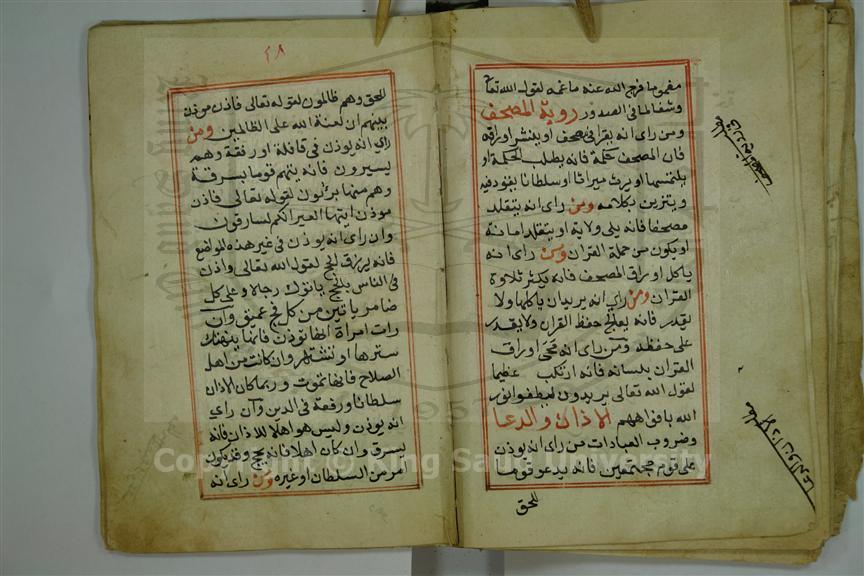 مغموما فرج الله عنه ما غمه لقوله الله تعالى
وشفا لما فى الصدور روية المصحف
ومن راى انه يقرا فى مصحف او ينشر اوراقه
فان المصحف حكمة فانه يطلب الحكمة او
يلتمسها او يرث ميراثا او سلطانا ينفوذ فيه
ويتزين بكلامه ومن راى انه يتقلد
مصحفا فانه يلى ولاية او يتقلد امانة
او يكون من حملة القران ومن راى انه
ياكل اوراق المصحف فانه يكثر تلاوة
القران ومن راى انه يريد ان ياكلها ولا
يقدر فانه يعالج حفظ القران ولا يقدر
على حفظه ومن راى انه محى اوراق
القران بلسانه فانه ارتكب عظيما
لقول الله تعالى يريدون ليطفوا نور
الله بافواههم الاذان والدعا
وضروب العبادات من راى انه يوذن
على قوم مجتمعين فانه يدعو قوما
للحق
٢٨
للحق وهم ظالمون لقوله تعالى فاذن موذن
بينهم ان لعنة الله على الظالمين ومن
راى انه يوذن فى قافلة او رفقة وهم
يسيرون فانه يتهم قوما بسرقة
وهم منها برئون لقوله تعالى فاذن
موذن ايتها العير انكم لسارقون
وان راى انه يوذن فى غير هذه المواضع
فانه يرزق الحج لقول الله تعالى واذن
فى الناس بالحج ياتوك رجالا وعلى كل
ضامر ياتين من كل فج عميق وان
رات امراة انها توذن فانما ينهتك
سترها او تشتهر وان كانت من اهل
الصلاح فانها تموت وربما كان الاذان
سلطانا ورفعة فى الدين وان راى
انه يوذن وليس هو اهلا للاذان فانه
يسرق وان كان اهلا فانه يحج وقد يكون
امر من السلطان او غيره ومن راى انه
Copyright © King Saud University
1957